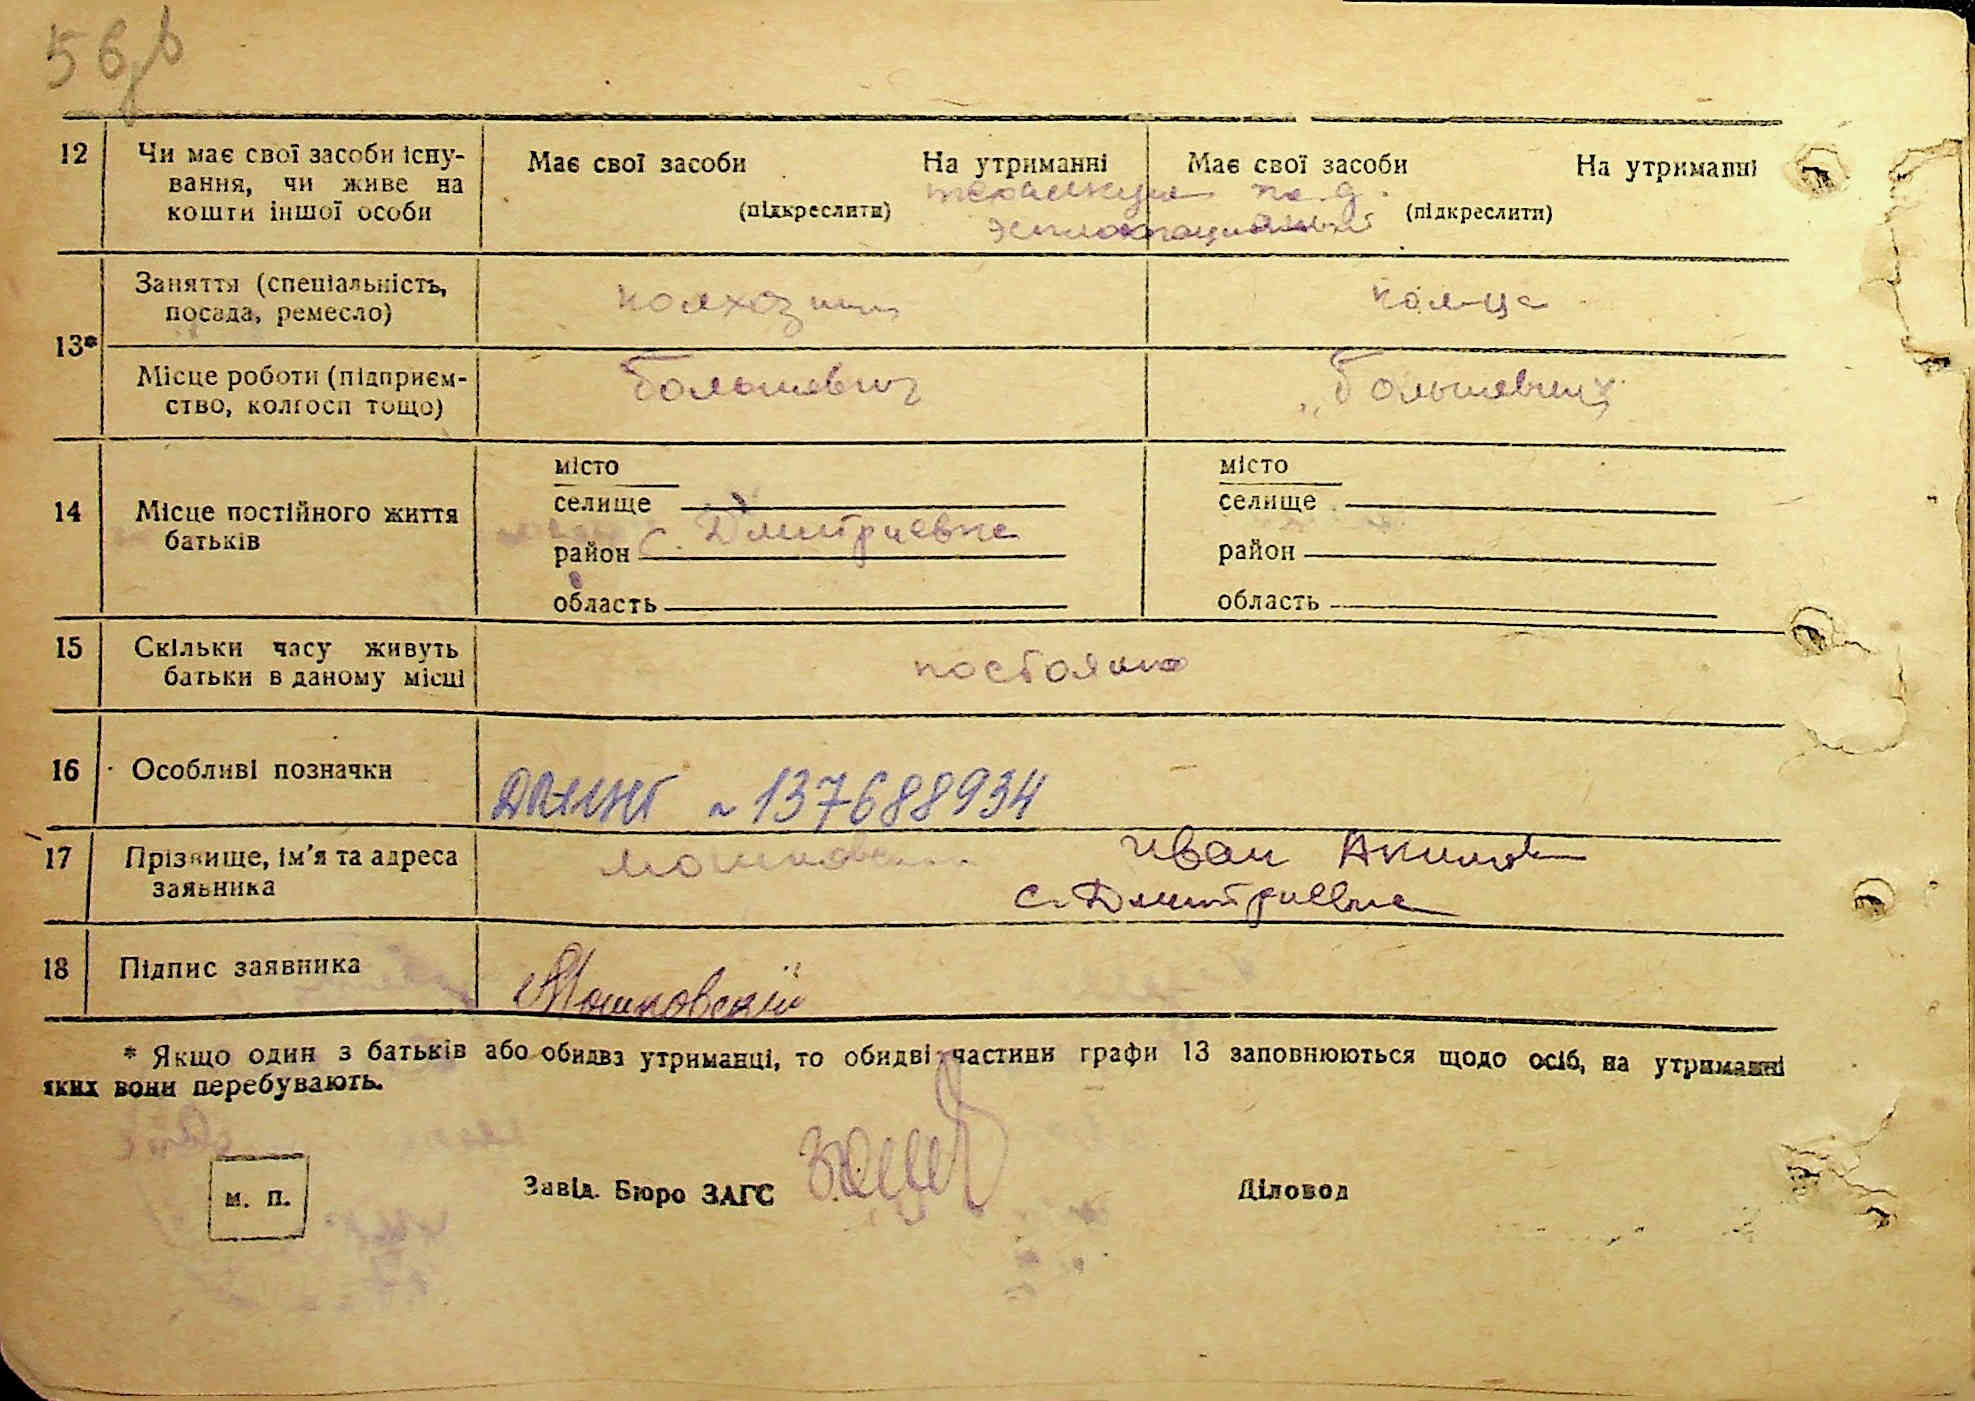 12 Чи має свої засоби існу-
вання, чи живе на
кошти іншої особи
Має свої засоби На утриманні
(підкреслити)
Має свої засоби На утриманні
(підкреслити)
13*
Заняття (спеціальність,
посада, ремесло)
колхозник
кол-ца
Місце роботи (підприєм-
ство, колгосп тощо)
Большевик
„Большевик
14 Місце постійного життя
батьків
місто
селище
с. Дмитриевка
район
область
місто
селище
район
область
15 Скільки часу живуть
батьки в даному місці
постояно
16 Особливі позначки
137688934
17 Прізвище, ім'я та адреса
заявника
Мошковский Иван Акимов
с. Дмитриевка
18 Підпис заявника
Мошковский
* Якщо один з батьків або обидва утриманці, то обидві частини графи 13 заповнюються щодо осіб, на утриманні
яких вони перебувають.
м. п.
Завід. Бюро ЗАГС
Діловод